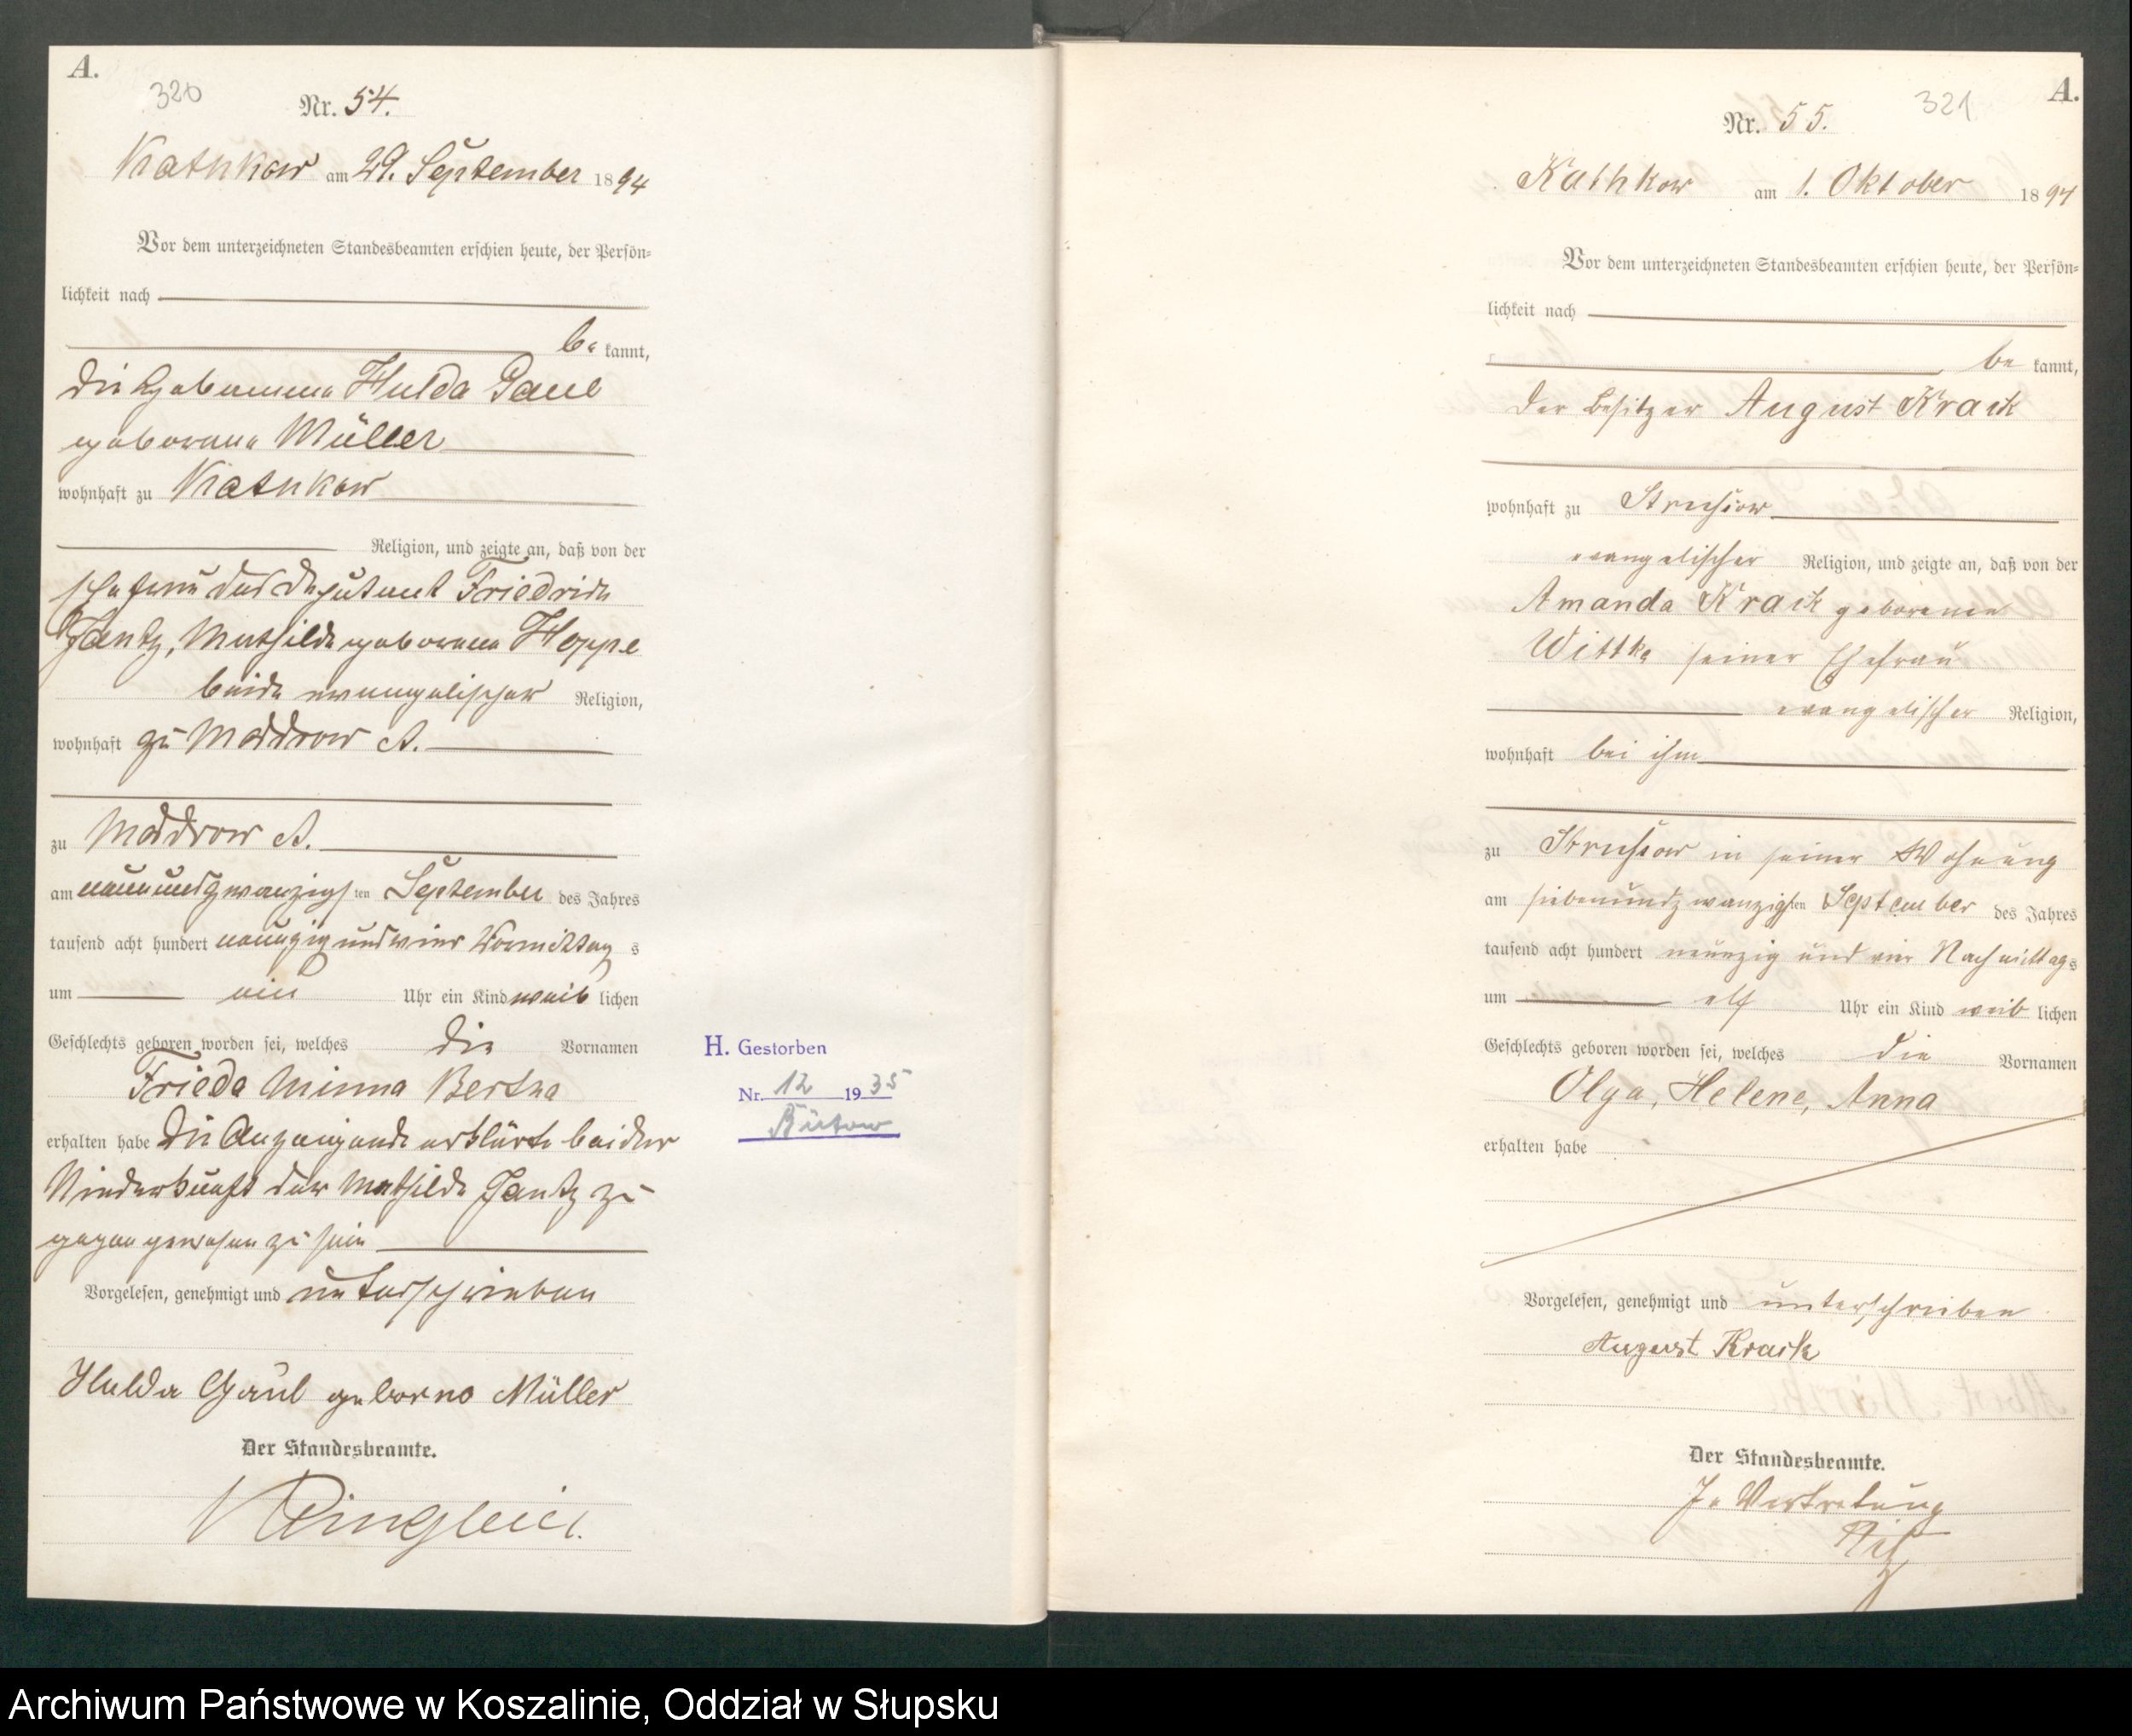 A.
320
Nr. 54.
Kathkow am 29. September 1894
Vor dem unterzeichneten Standesbeamten erschien heute, der Persön-
lichkeit nach
be kannt,
die Hebamme Hulda Gaul
geborene Müller
wohnhaft zu Kathkow
Religion, und zeigte an, daß von der
Ehefrau des Deputant Friedrich
Jantz, Mathilde geborene Hoppe
beide evangelischer Religion,
wohnhaft zu Moddrow A.
zu Moddrow A.
am neunundzwanzigsten September des Jahres
tausend acht hundert neunzig und vier Vormittags
um ein Uhr ein Kind weiblichen
Geschlechts geboren worden sei, welches die Vornamen
Frieda Minna Bertha
erhalten habe Die Anzeigende erklärte bei der
Niederkunft der Mathilde Jantz zu
gegen gewesen zu sein
Vorgelesen, genehmigt und unterschrieben
Hulda Gaul geborne Müller
Der Standesbeamte.
H. Gestorben
Nr. 12 1935
Bütow
A.
321
Nr. 55.
Kathkow am 1. Oktober 1894
Vor dem unterzeichneten Standesbeamten erschien heute, der Persön-
lichkeit nach
be kannt,
der Besitzer August Krack
wohnhaft zu Strussow
evangelischer Religion, und zeigte an, daß von der
Amanda Krack geborenen
Wittke seiner Ehefrau
evangelischer Religion,
wohnhaft bei ihm
zu Strussow in seiner Wohnung
am siebenundzwanzigsten September des Jahres
tausend acht hundert neunzig und vier Nachmittags
um elf Uhr ein Kind weiblichen
Geschlechts geboren worden sei, welches die Vornamen
Olga, Helene, Anna
erhalten habe
Vorgelesen, genehmigt und unterschrieben
August Krack
Der Standesbeamte.
In Vertretung
Archiwum Państwowe w Koszalinie, Oddział w Słupsku